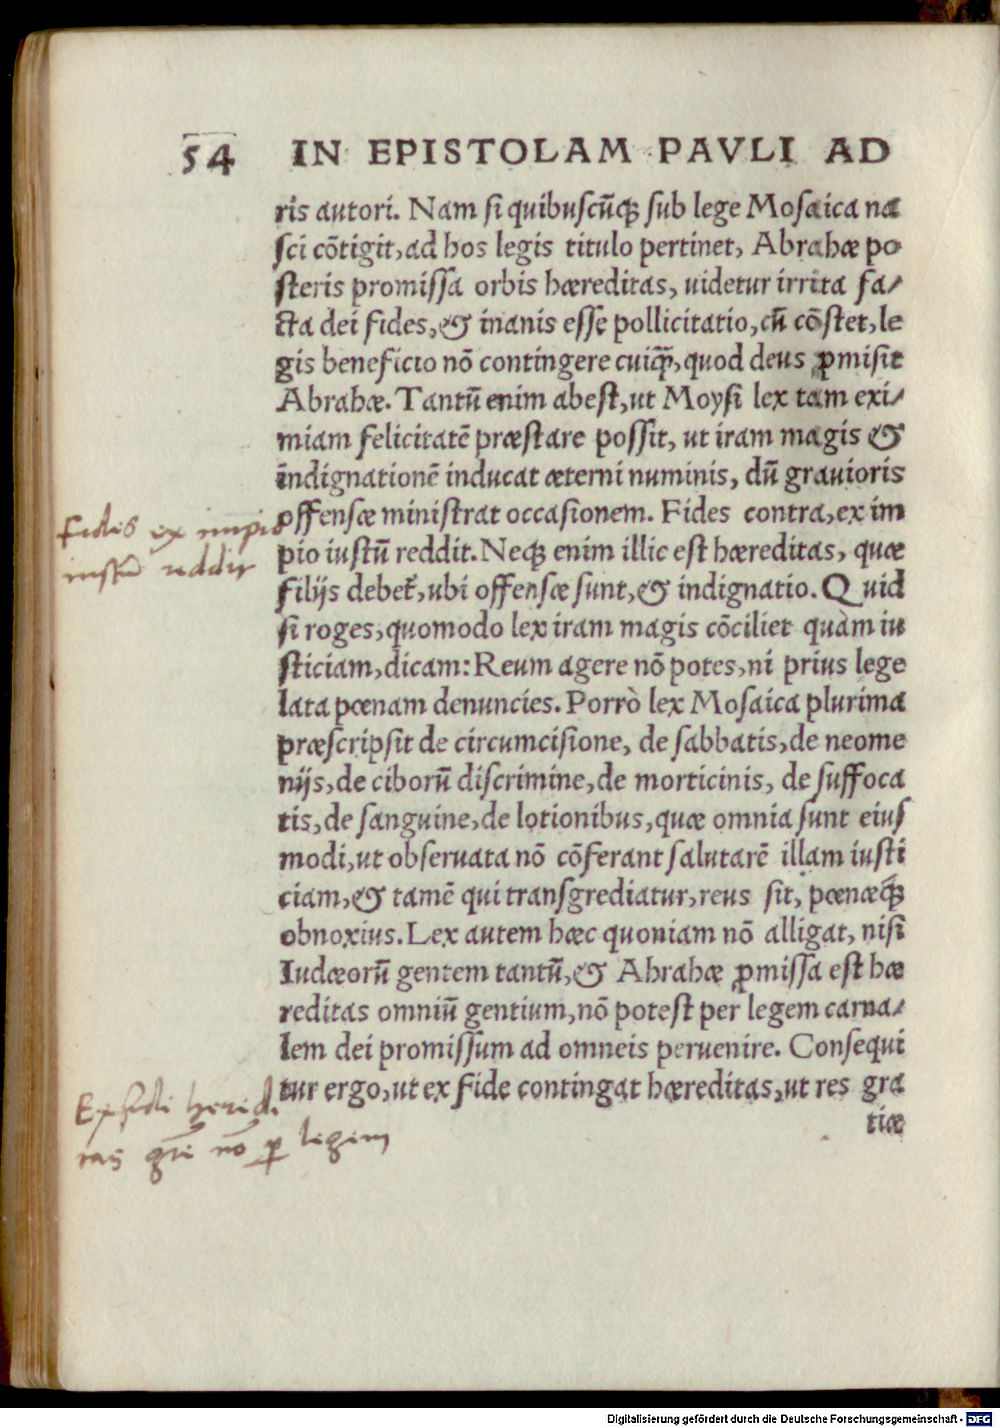 54 IN EPISTOLAM PAVLI AD
ris autori. Nam si quibuscũq; sub lege Mosaica na
sci cõtigit, ad hos legis titulo pertinet, Abrahæ po
steris promissa orbis hæreditas, uidetur irrita fa-
cta dei fides, & inanis esse pollicitatio, cũ cõstet, le
gis beneficio nõ contingere cuiq̃, quod deus ꝓmisit
Abrahæ. Tantũ enim abest, ut Moysi lex tam exi-
miam felicitatẽ præstare possit, ut iram magis &
indignationẽ inducat æterni numinis, dũ grauioris
offensæ ministrat occasionem. Fides contra, ex im
pio iustũ reddit. Neq; enim illic est hæreditas, quæ
filijs debet̃, ubi offensæ sunt, & indignatio. Quid
si roges, quomodo lex iram magis cõciliet quàm iu
sticiam, dicam: Reum agere nõ potes, ni prius lege
lata pœnam denuncies. Porrò lex Mosaica plurima
præscripsit de circumcisione, de sabbatis, de neome
nijs, de ciborũ discrimine, de morticinis, de suffoca
tis, de sanguine, de lotionibus, quæ omnia sunt eius
modi, ut obseruata nõ cõferant salutarẽ illam iusti
ciam, & tamẽ qui transgrediatur, reus sit, pœnæq;
obnoxius. Lex autem hæc quoniam nõ alligat, nisi
Iudæorũ gentem tantũ, & Abrahæ ꝓmissa est hæ
reditas omniũ gentium, nõ potest per legem carna-
lem dei promissum ad omneis peruenire. Consequi
tur ergo, ut ex fide contingat hæreditas, ut res gra
tiæ
Fides ex impio
iustũ reddit
Ex fidei heredi
tas nõ ꝑ legem
Digitalisierung gefördert durch die Deutsche Forschungsgemeinschaft - DFG